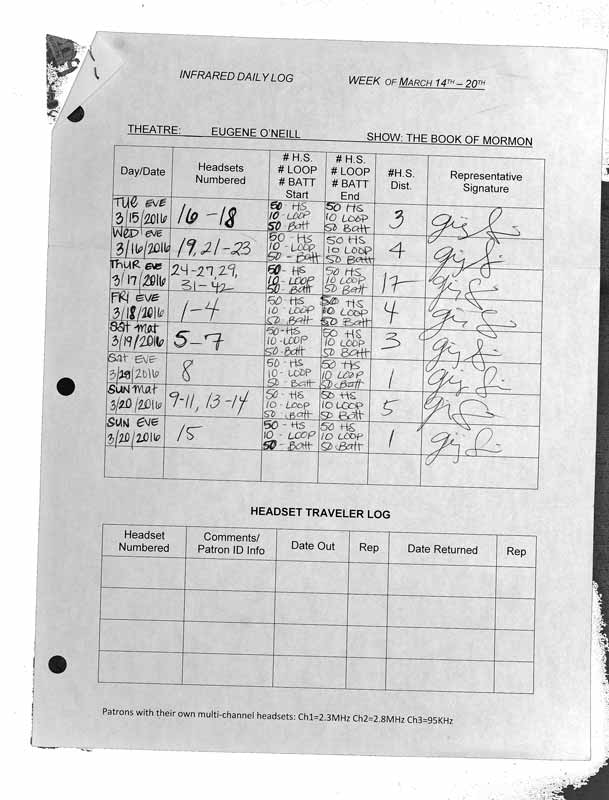 INFRARED DAILY LOG WEEK OF MARCH 14TH – 20TH
THEATRE: EUGENE O'NEILL SHOW: THE BOOK OF MORMON
Day/Date Headsets Numbered # H.S. # LOOP # BATT Start # H.S. # LOOP # BATT End #H.S. Dist. Representative Signature
TUE EVE 3/15/2016 16-18 50-HS 10-LOOP 50 Batt 50 HS 10 LOOP 50 Batt 3
WED EVE 3/16/2016 19, 21-23 50-HS 10-LOOP 50-Batt 50 HS 10 LOOP 50 Batt 4
THUR EVE 3/17/2016 24-27, 29, 31-42 50-HS 10-LOOP 50-Batt 50 HS 10 LOOP 50 Batt 17
FRI EVE 3/18/2016 1-4 50-HS 10-LOOP 50-Batt 50 HS 10 LOOP 50 Batt 4
Sat mat 3/19/2016 5-7 50-HS 10-LOOP 50-Batt 50 HS 10 LOOP 50 Batt 3
Sat EVE 2016 8 50-HS 10-LOOP 50-Batt 50 HS 10 LOOP 50 Batt 1
SUN mat 3/20/2016 9-11, 13-14 50-HS 10-LOOP 50-Batt 50 HS 10 LOOP 50 Batt 5
SUN EVE 3/20/2016 15 50-HS 10-LOOP 50-Batt 50 HS 10 LOOP 50 Batt 1
HEADSET TRAVELER LOG
Headset Numbered Comments/ Patron ID Info Date Out Rep Date Returned Rep
Patrons with their own multi-channel headsets: Ch1=2.3MHz Ch2=2.8MHz Ch3=95KHz